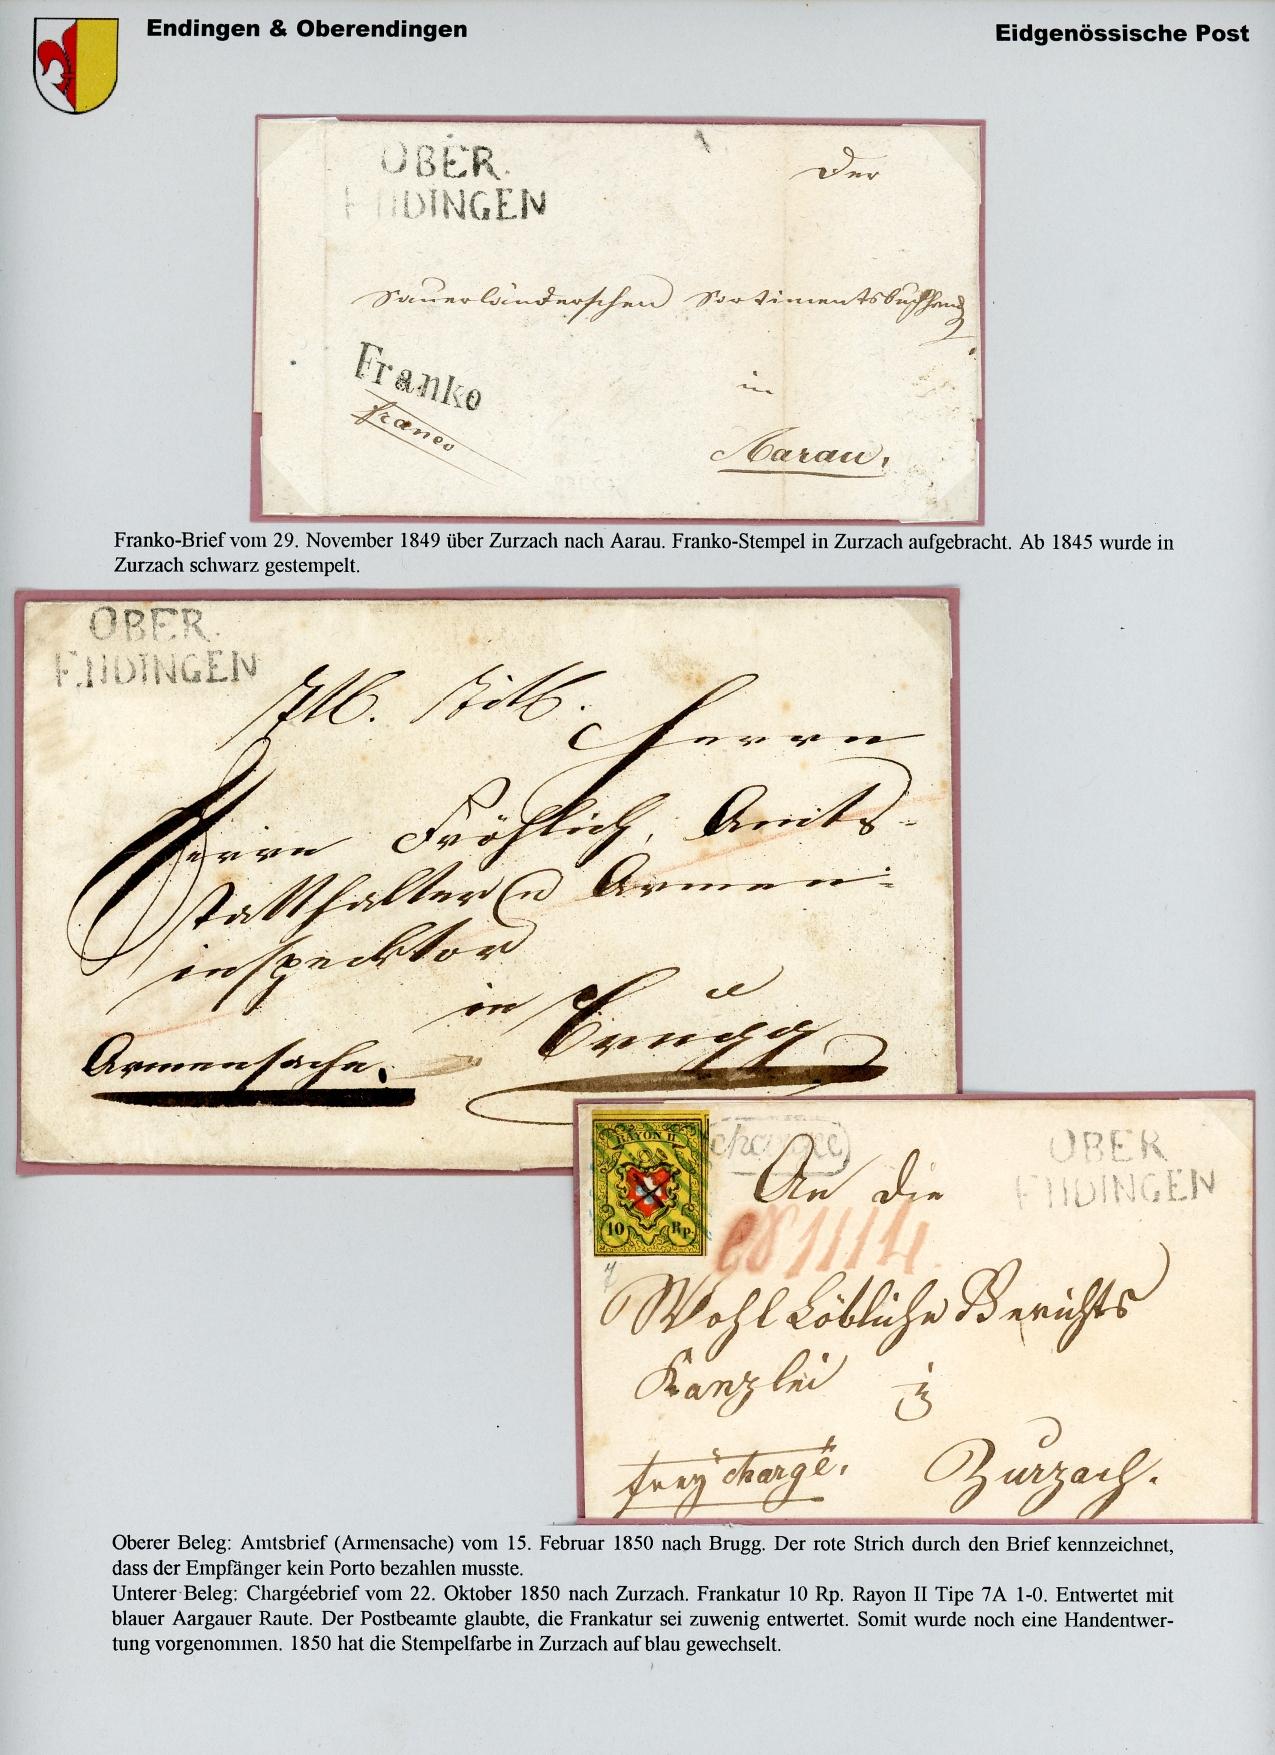 Endingen & Oberendingen
Eidgenössische Post
OBER.
ENDINGEN
Der
Sauerländerschen Sortimentsbuchhandg
Franko
franco
in
Aarau.
Franko-Brief vom 29. November 1849 über Zurzach nach Aarau. Franko-Stempel in Zurzach aufgebracht. Ab 1845 wurde in
Zurzach schwarz gestempelt.
OBER.
ENDINGEN
Herrn
Herrn Fröhlich, Amts-
statthalter u Armen-
inspecktor
in Brugg
Armensache.
RAYON II
10 Rp.
chargée
OBER
ENDINGEN
An die
1114
Wohl Löbliche Berichts
Kanzlei
Zurzach.
frey chargé.
Oberer Beleg: Amtsbrief (Armensache) vom 15. Februar 1850 nach Brugg. Der rote Strich durch den Brief kennzeichnet,
dass der Empfänger kein Porto bezahlen musste.
Unterer Beleg: Chargéebrief vom 22. Oktober 1850 nach Zurzach. Frankatur 10 Rp. Rayon II Tipe 7A 1-0. Entwertet mit
blauer Aargauer Raute. Der Postbeamte glaubte, die Frankatur sei zuwenig entwertet. Somit wurde noch eine Handentwer-
tung vorgenommen. 1850 hat die Stempelfarbe in Zurzach auf blau gewechselt.